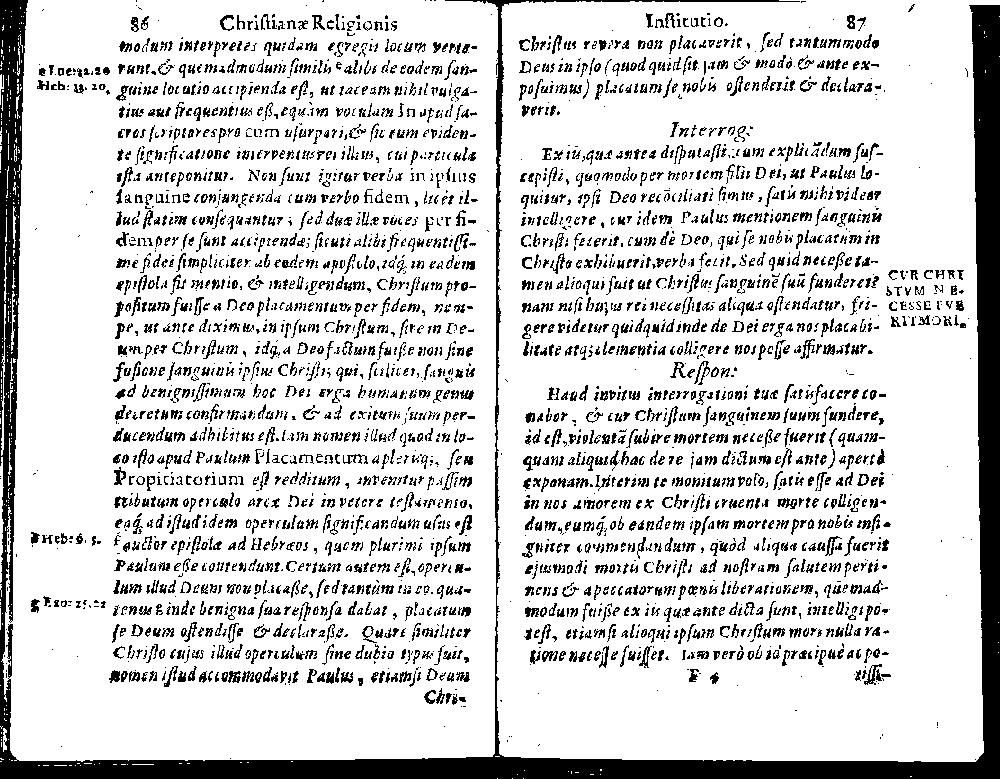 86 Christianæ Religionis
modum interpretes quidam egregii locum verte-
runt, & quemadmodum similis e alibi de eodem san-
e Luc: 22. 20
Heb: 13. 20.
guine locutio accipienda est, ut taceam nihil vulga-
tius aut frequentius esse, equàm voculam In apud sa-
cros scriptores pro cum usurpari, & sic eum eviden-
te significatione interventus rei illius, cui particula
ista anteponitur. Non sunt igitur verba in ipsius
sanguine conjungenda cum verbo fidem, licèt il-
lud statim consequantur; sed duæ illæ voces per fi-
dem per se sunt accipiendæ, sicuti alibi frequentissi-
me fidei simpliciter ab eodem apostolo, idq́, in eadem
epistola fit mentio, & intelligendum, Christum pro-
positum fuisse a Deo placamentum per fidem, nem-
pe, ut ante diximus, in ipsum Christum, sive in De-
um per Christum, idq́, a Deo factum fuisse non sine
fusione sanguinis ipsius Christi, qui, scilicet, sanguis
ad benignissimum hoc Dei erga humanum genus
decretum confirmandum, & ad exitum suum per-
ducendum adhibitus est. Iam nomen illud quod in lo-
co isto apud Paulum Placamentum a plerisq;, seu
Propitiatorium est redditum, invenitur passim
tributum operculo arcæ Dei in vetere testamento,
eaq́, ad istud idem operculum significandum usus est
f auctor epistolæ ad Hebræos, quem plurimi ipsum
f Heb: 9. 5.
Paulum esse contendunt. Certum autem est, opercu-
lum illud Deum non placasse, sed tantùm in eo, qua-
tenus g inde benigna sua responsa dabat, placatum
g Exo: 25. 22
se Deum ostendisse & declarasse. Quare similiter
Christo cujus illud operculum sine dubio typus fuit,
nomen istud accommodavit Paulus, etiamsi Deum
Chri-
Institutio. 87
Christus revera non placaverit, sed tantummodo
Deus in ipso (quod quid sit jam & modò & ante ex-
posuimus) placatum se nobis ostenderit & declara-
verit.
Interrog:
Ex iis, quæ antea disputasti, cum explicãdum sus-
cepisti, quomodo per mortem filii Dei, ut Paulus lo-
quitur, ipsi Deo recõciliati simus, satis mihi videor
intelligere, cur idem Paulus mentionem sanguinis
Christi fecerit, cum dè Deo, qui se nobis placatum in
Christo exhibuerit, verba fecit. Sed quid necesse ta-
men alioqui fuit ut Christus sanguinẽ suũ funderet?
CVR CHRI
STVM NE-
CESSE FVE
RIT MORI.
nam nisi hujus rei necessitas aliqua ostendatur, fri-
gere videtur quidquid inde de Dei erga nos placabi-
litate atq; clementia colligere nos posse affirmatur.
Respon:
Haud invitus interrogationi tuæ satisfacere co-
nabor, & cur Christum sanguinem suum fundere,
id est, violentã subire mortem necesse fuerit (quam-
quam aliquid hac de re jam dictum est ante) apertè
exponam. Interim te monitum volo, satis esse ad Dei
in nos amorem ex Christi cruenta morte colligen-
dum, eumq́, ob eandem ipsam mortem pro nobis insi-
gniter commendandum, quòd aliqua caussa fuerit
ejusmodi mortis Christi ad nostram salutem perti-
nens & a peccatorum pœnis liberationem, quẽmad-
modum fuisse ex iis quæ ante dicta sunt, intelligi po-
test, etiamsi alioqui ipsum Christum mori nulla ra-
tione necesse fuisset. Iam verò ob id præcipuè ac po-
F 4 tissi-